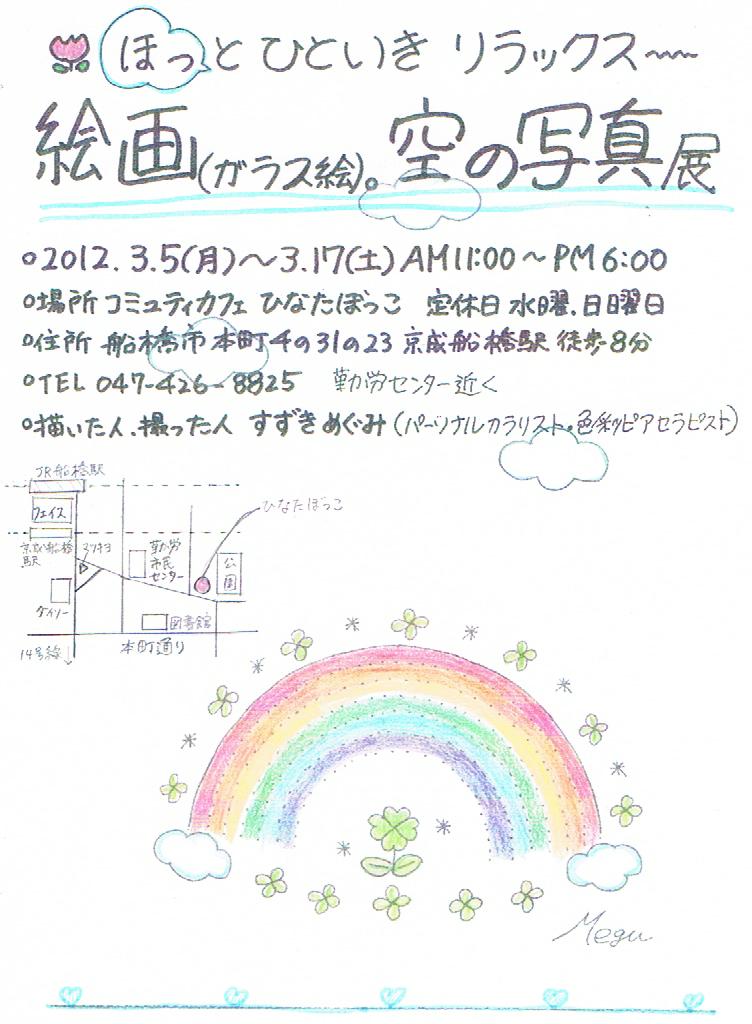 ほっと ひといき リラックス〜〜
絵画(ガラス絵)。空の写真展
○2012.3.5(月)〜3.17(土)AM11:00〜PM6:00
○場所 コミュティカフェ ひなたぼっこ 定休日 水曜.日曜日
○住所 船橋市 本町4の31の23 京成船橋駅 徒歩8分
○TEL 047-426-8825 勤労センター近く
○描いた人.撮った人 すずきめぐみ(パーソナルカラリスト・色彩ッピアセラピスト)
JR船橋駅
フェイス
ひなたぼっこ
京成船橋駅
マツキヨ
勤労市民センター
公園
ダイソー
図書館
14号線↓
本町通り
Megu